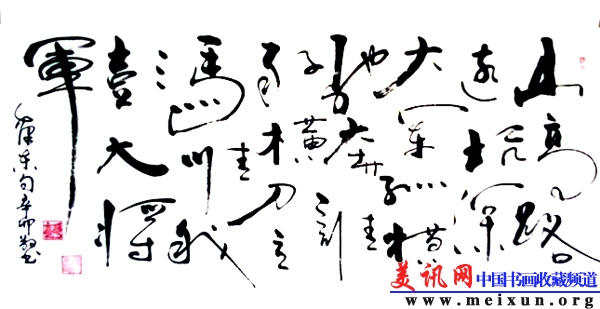 山高路
远坑深
大军纵横
驰奔谁
敢横刀立
馬唯我
彭大将
軍
辛卯
美讯网 中国书画收藏频道
www.meixun.org